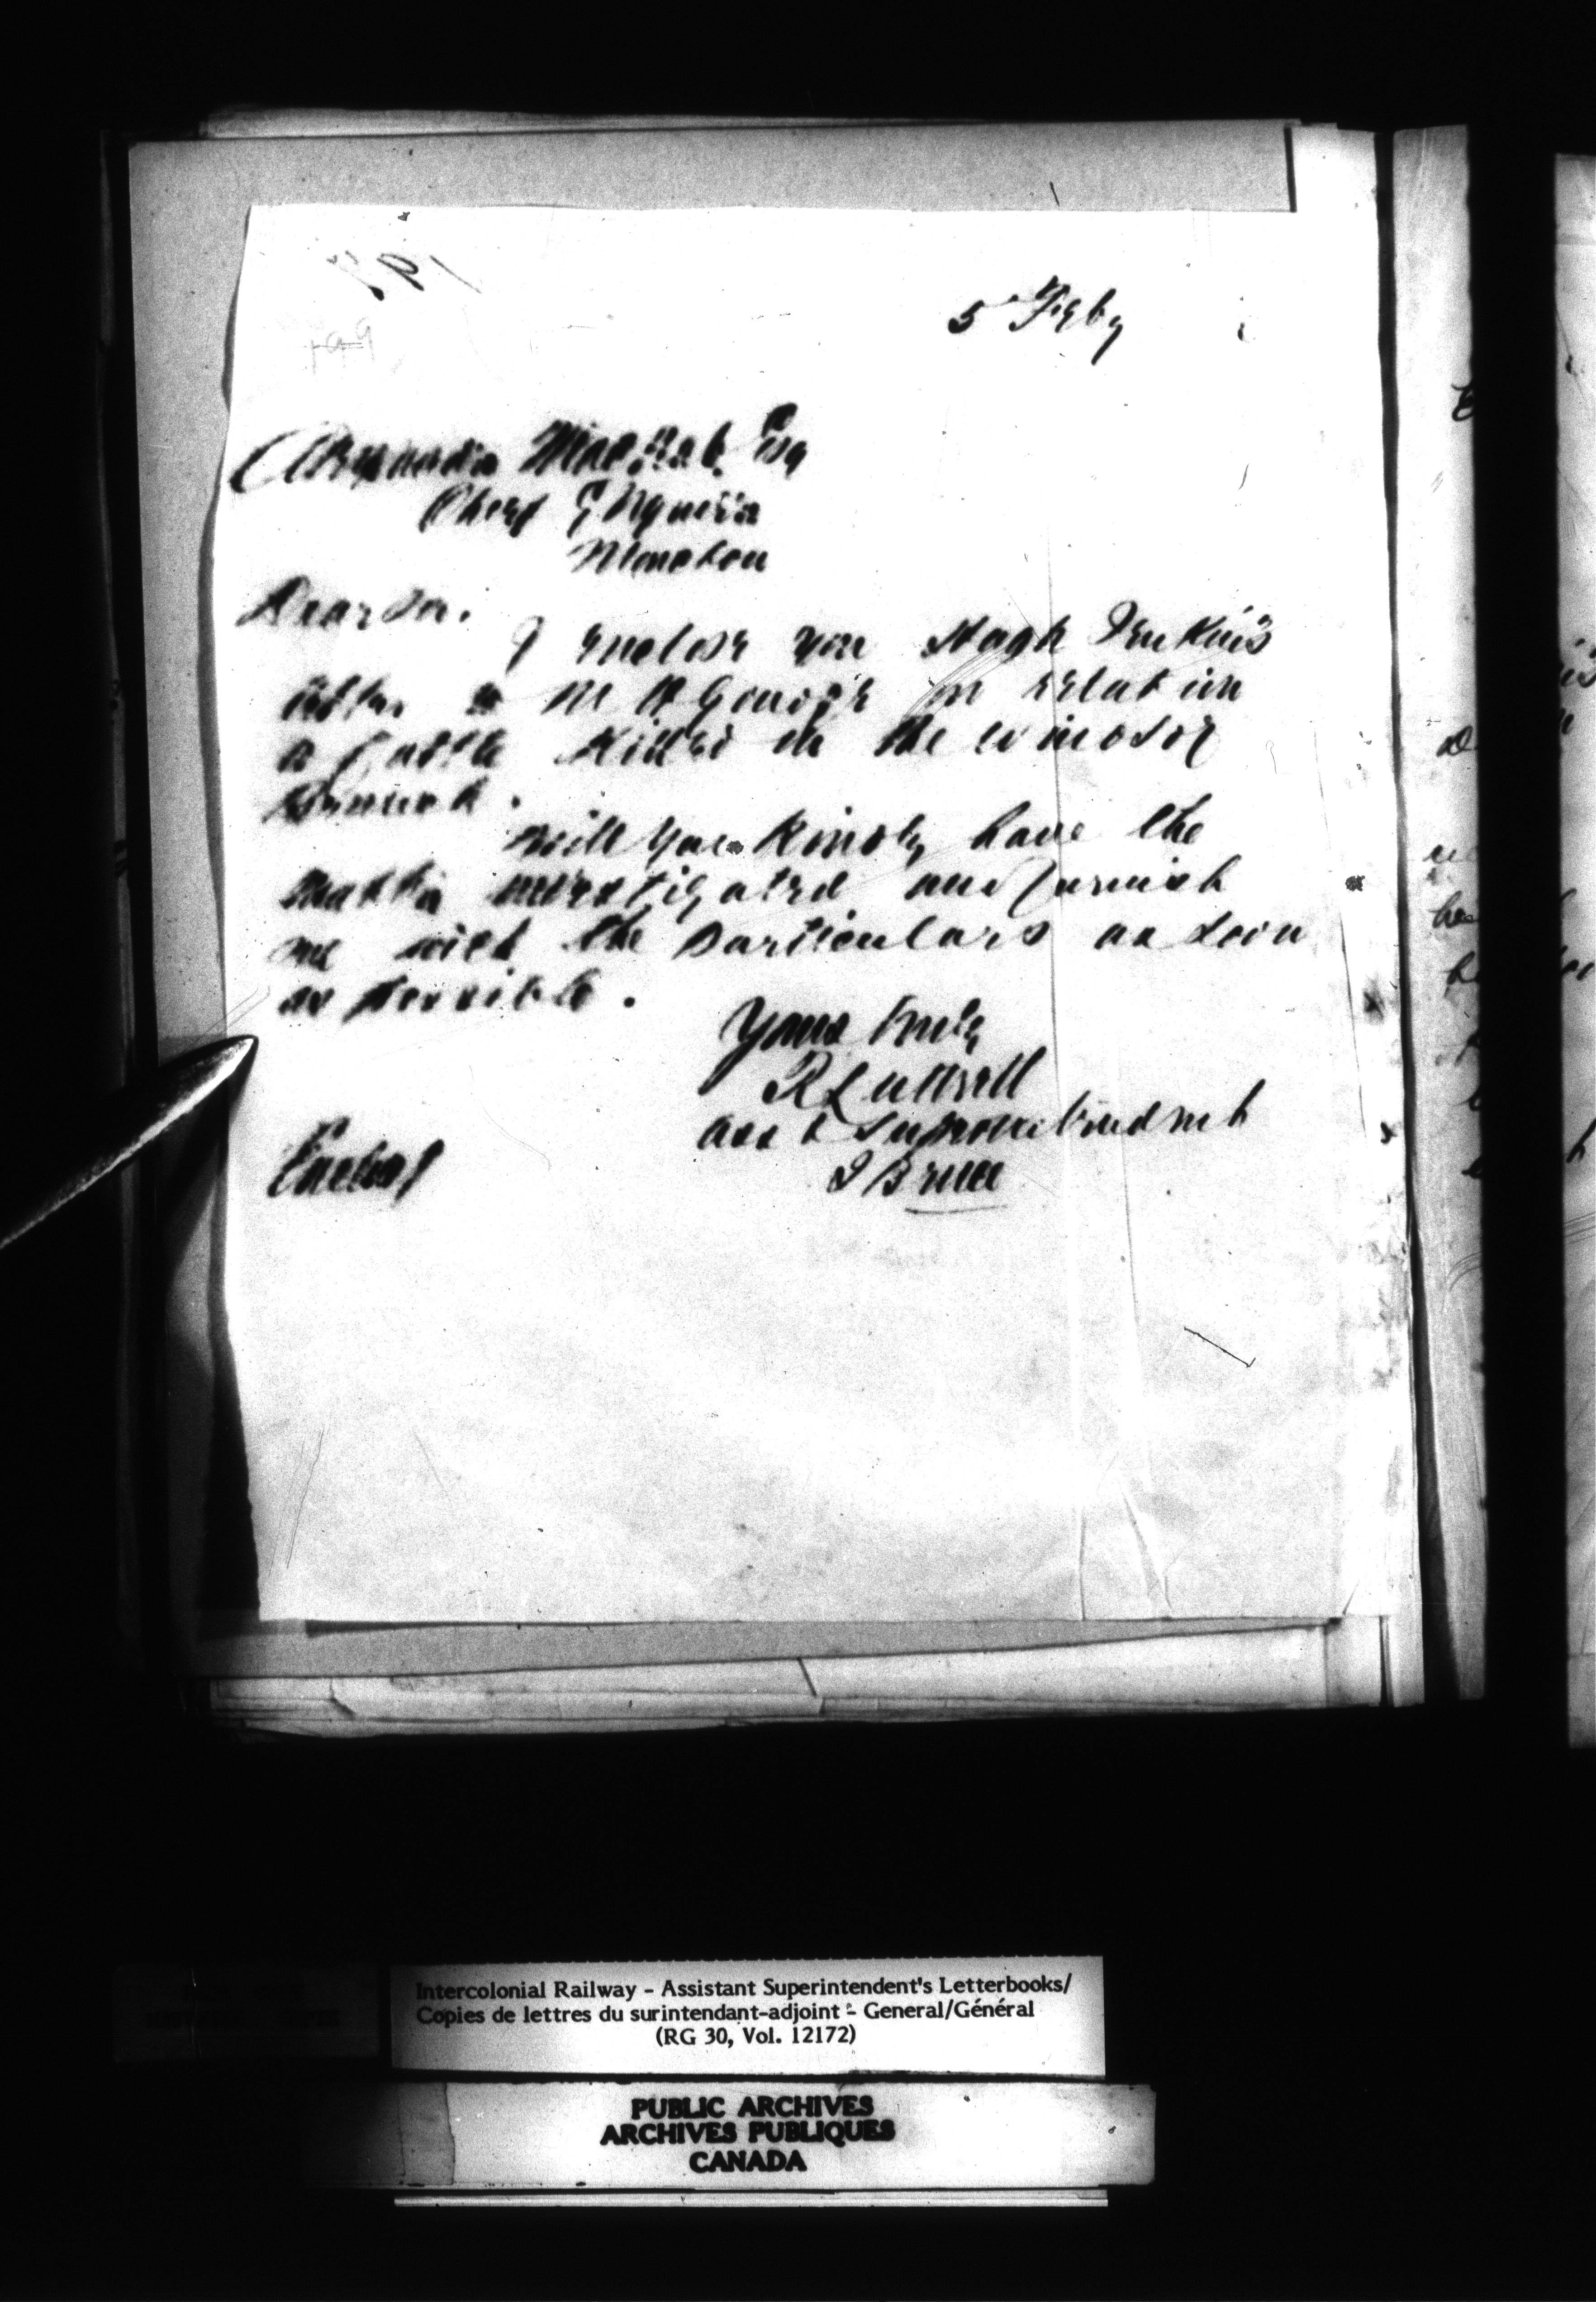 5 Feby
Alexander MacNab Esq
Chief Engineer
Moncton
Dear Sir.
I enclose you Hugh Jenkins
letter to in relation
to Cattle Killed on the Windsor
Branch.
Will you Kindly have the
matter investigated and furnish
me with the particulars as soon
as possible.
Yours truly
R Luttrell
Asst Superintendent
J Bruce
Enclos
Intercolonial Railway - Assistant Superintendent's Letterbooks/
Copies de lettres du surintendant-adjoint - General/Général
(RG 30, Vol. 12172)
PUBLIC ARCHIVES
ARCHIVES PUBLIQUES
CANADA